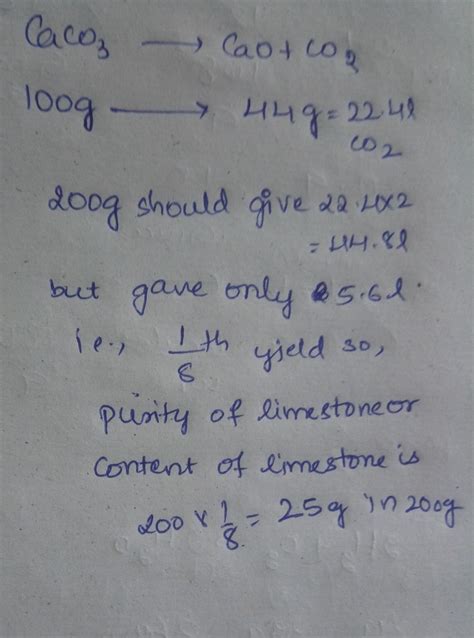 CaCO3 → CaO + CO2
100g → 44g = 22.4l
CO2
200g should give 22.4x2
= 44.8l
but gave only 5.6l.
ie., 1/8 th yield so,
purity of limestone or
content of limestone is
200 x 1/8 = 25g in 200g